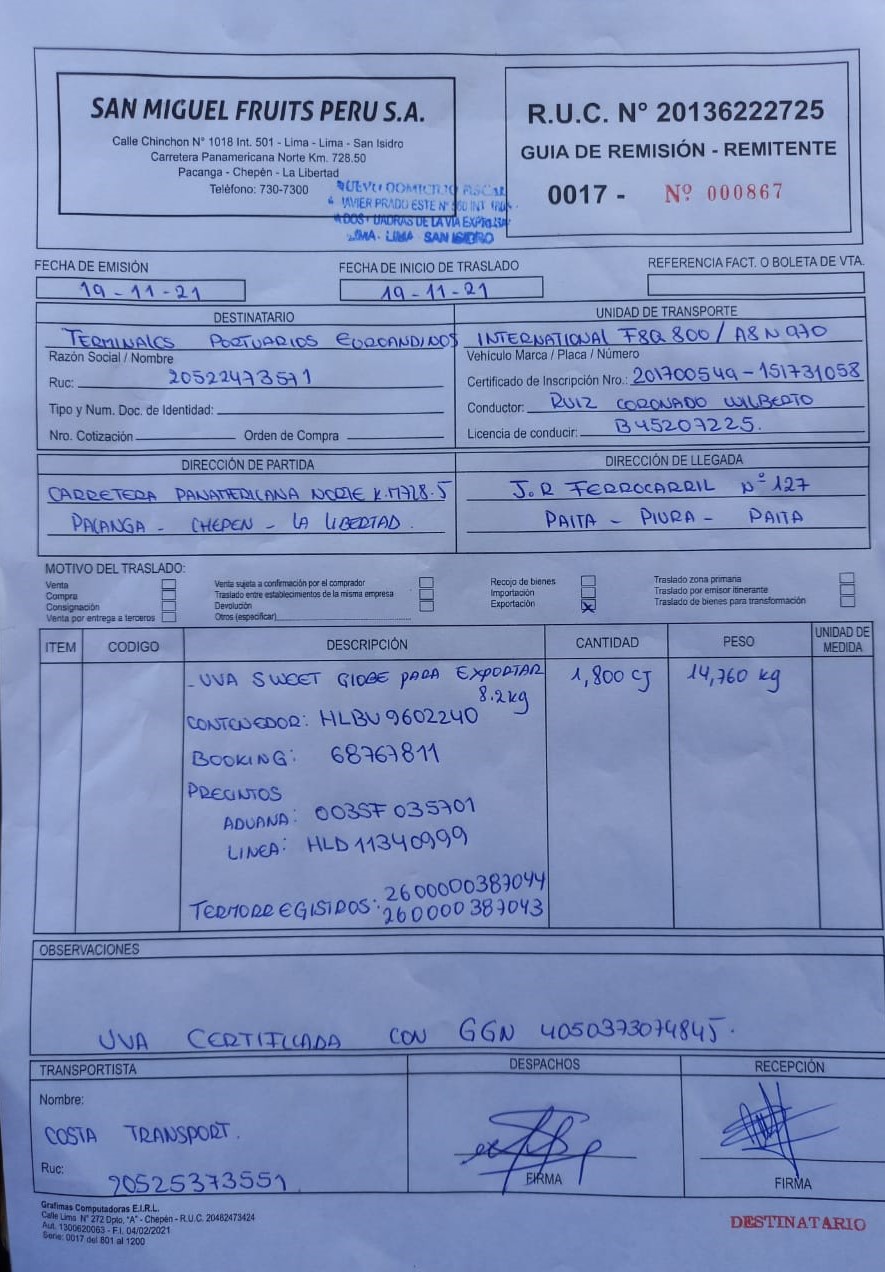 SAN MIGUEL FRUITS PERU S.A.
Calle Chinchon N° 1018 Int. 501 - Lima - Lima - San Isidro
Carretera Panamericana Norte Km. 728.50
Pacanga - Chepén - La Libertad
Teléfono: 730-7300
NUEVO DOMICILIO FISCAL
JAVIER PRADO ESTE N°
CUADRAS DE LA VIA EXPRESA
LIMA - LIMA SAN ISIDRO
R.U.C. N° 20136222725
GUIA DE REMISIÓN - REMITENTE
0017 - Nº 000867
FECHA DE EMISIÓN
19-11-21
FECHA DE INICIO DE TRASLADO
19-11-21
REFERENCIA FACT. O BOLETA DE VTA.
DESTINATARIO
TERMINALES PORTUARIOS EUROANDINOS
Razón Social / Nombre
Ruc: 20522473571
Tipo y Num. Doc. de Identidad:
Nro. Cotización Orden de Compra
UNIDAD DE TRANSPORTE
INTERNATIONAL F8Q 800 / A8N 970
Vehículo Marca / Placa / Número
Certificado de Inscripción Nro.: 201700549 - 151731058
Conductor: RUIZ CORONADO WILBERTO
Licencia de conducir: B45207225.
DIRECCIÓN DE PARTIDA
CARRETERA PANAMERICANA NORTE K.M728.5
PACANGA - CHEPEN - LA LIBERTAD.
DIRECCIÓN DE LLEGADA
J.R FERROCARRIL Nº 127
PAITA - PIURA - PAITA
MOTIVO DEL TRASLADO:
Venta
Compra
Consignación
Venta por entrega a terceros
Venta sujeta a confirmación por el comprador
Traslado entre establecimientos de la misma empresa
Devolución
Otros (especificar)
Recojo de bienes
Importación
Exportación X
Traslado zona primaria
Traslado por emisor itinerante
Traslado de bienes para transformación
ITEM CODIGO DESCRIPCIÓN CANTIDAD PESO UNIDAD DE MEDIDA
- UVA SWEET GLOBE PARA EXPORTAR 1,800 CJ 14,760 kg
8.2kg
CONTENEDOR: HLBU 9602240
BOOKING: 68767811
PRECINTOS
ADUANA: 003SF 035701
LINEA: HLD 11340999
TERMORREGISIDROS: 2600000387044
260000 387043
OBSERVACIONES
UVA CERTIFICADA CON GGN 4050373074845.
TRANSPORTISTA
Nombre:
COSTA TRANSPORT.
Ruc: 20525373551
DESPACHOS
FIRMA
RECEPCIÓN
FIRMA
Grafimas Computadoras E.I.R.L.
Calle Lima N° 272 Dpto. "A" - Chepén - R.U.C. 20482473424
Aut. 1300620063 - F.I. 04/02/2021
Serie: 0017 del 801 al 1200
DESTINATARIO